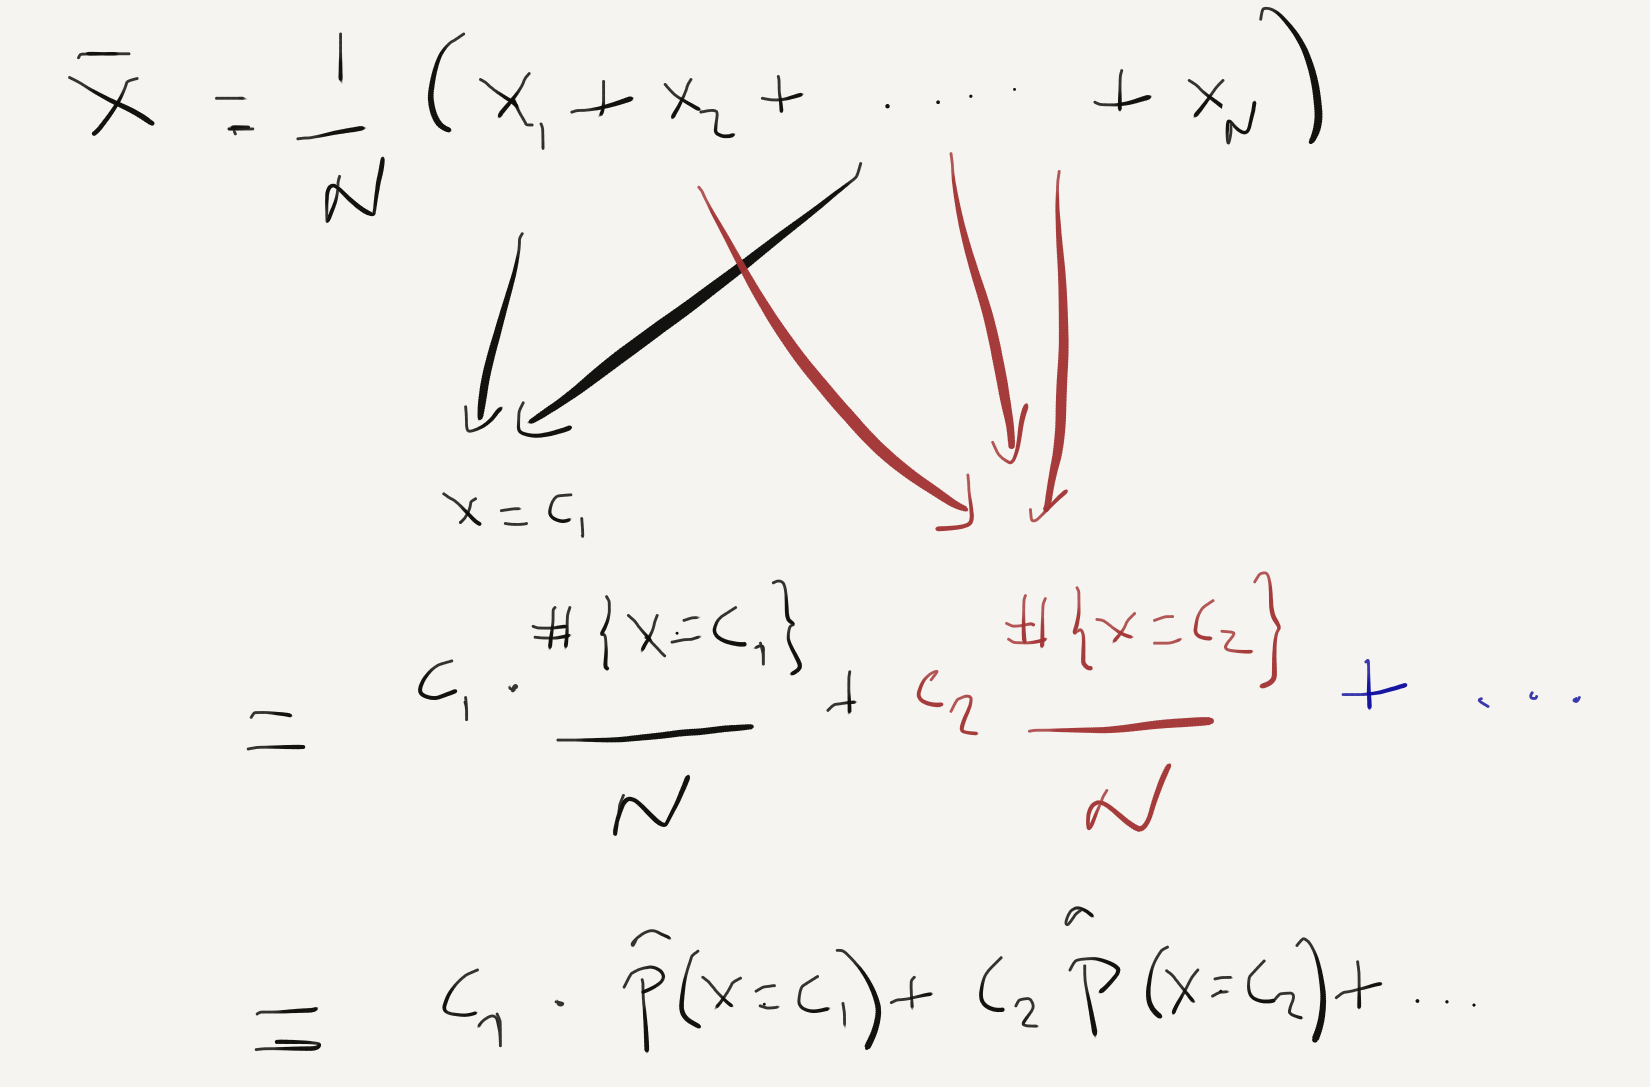 x̄ = 1/N (x₁ + x₂ + .... + x_N)
x = c₁
= c₁ · #{x = c₁}/N + c₂ #{x = c₂}/N + ...
= c₁ · p̂(x = c₁) + c₂ p̂(x = c₂) + ...